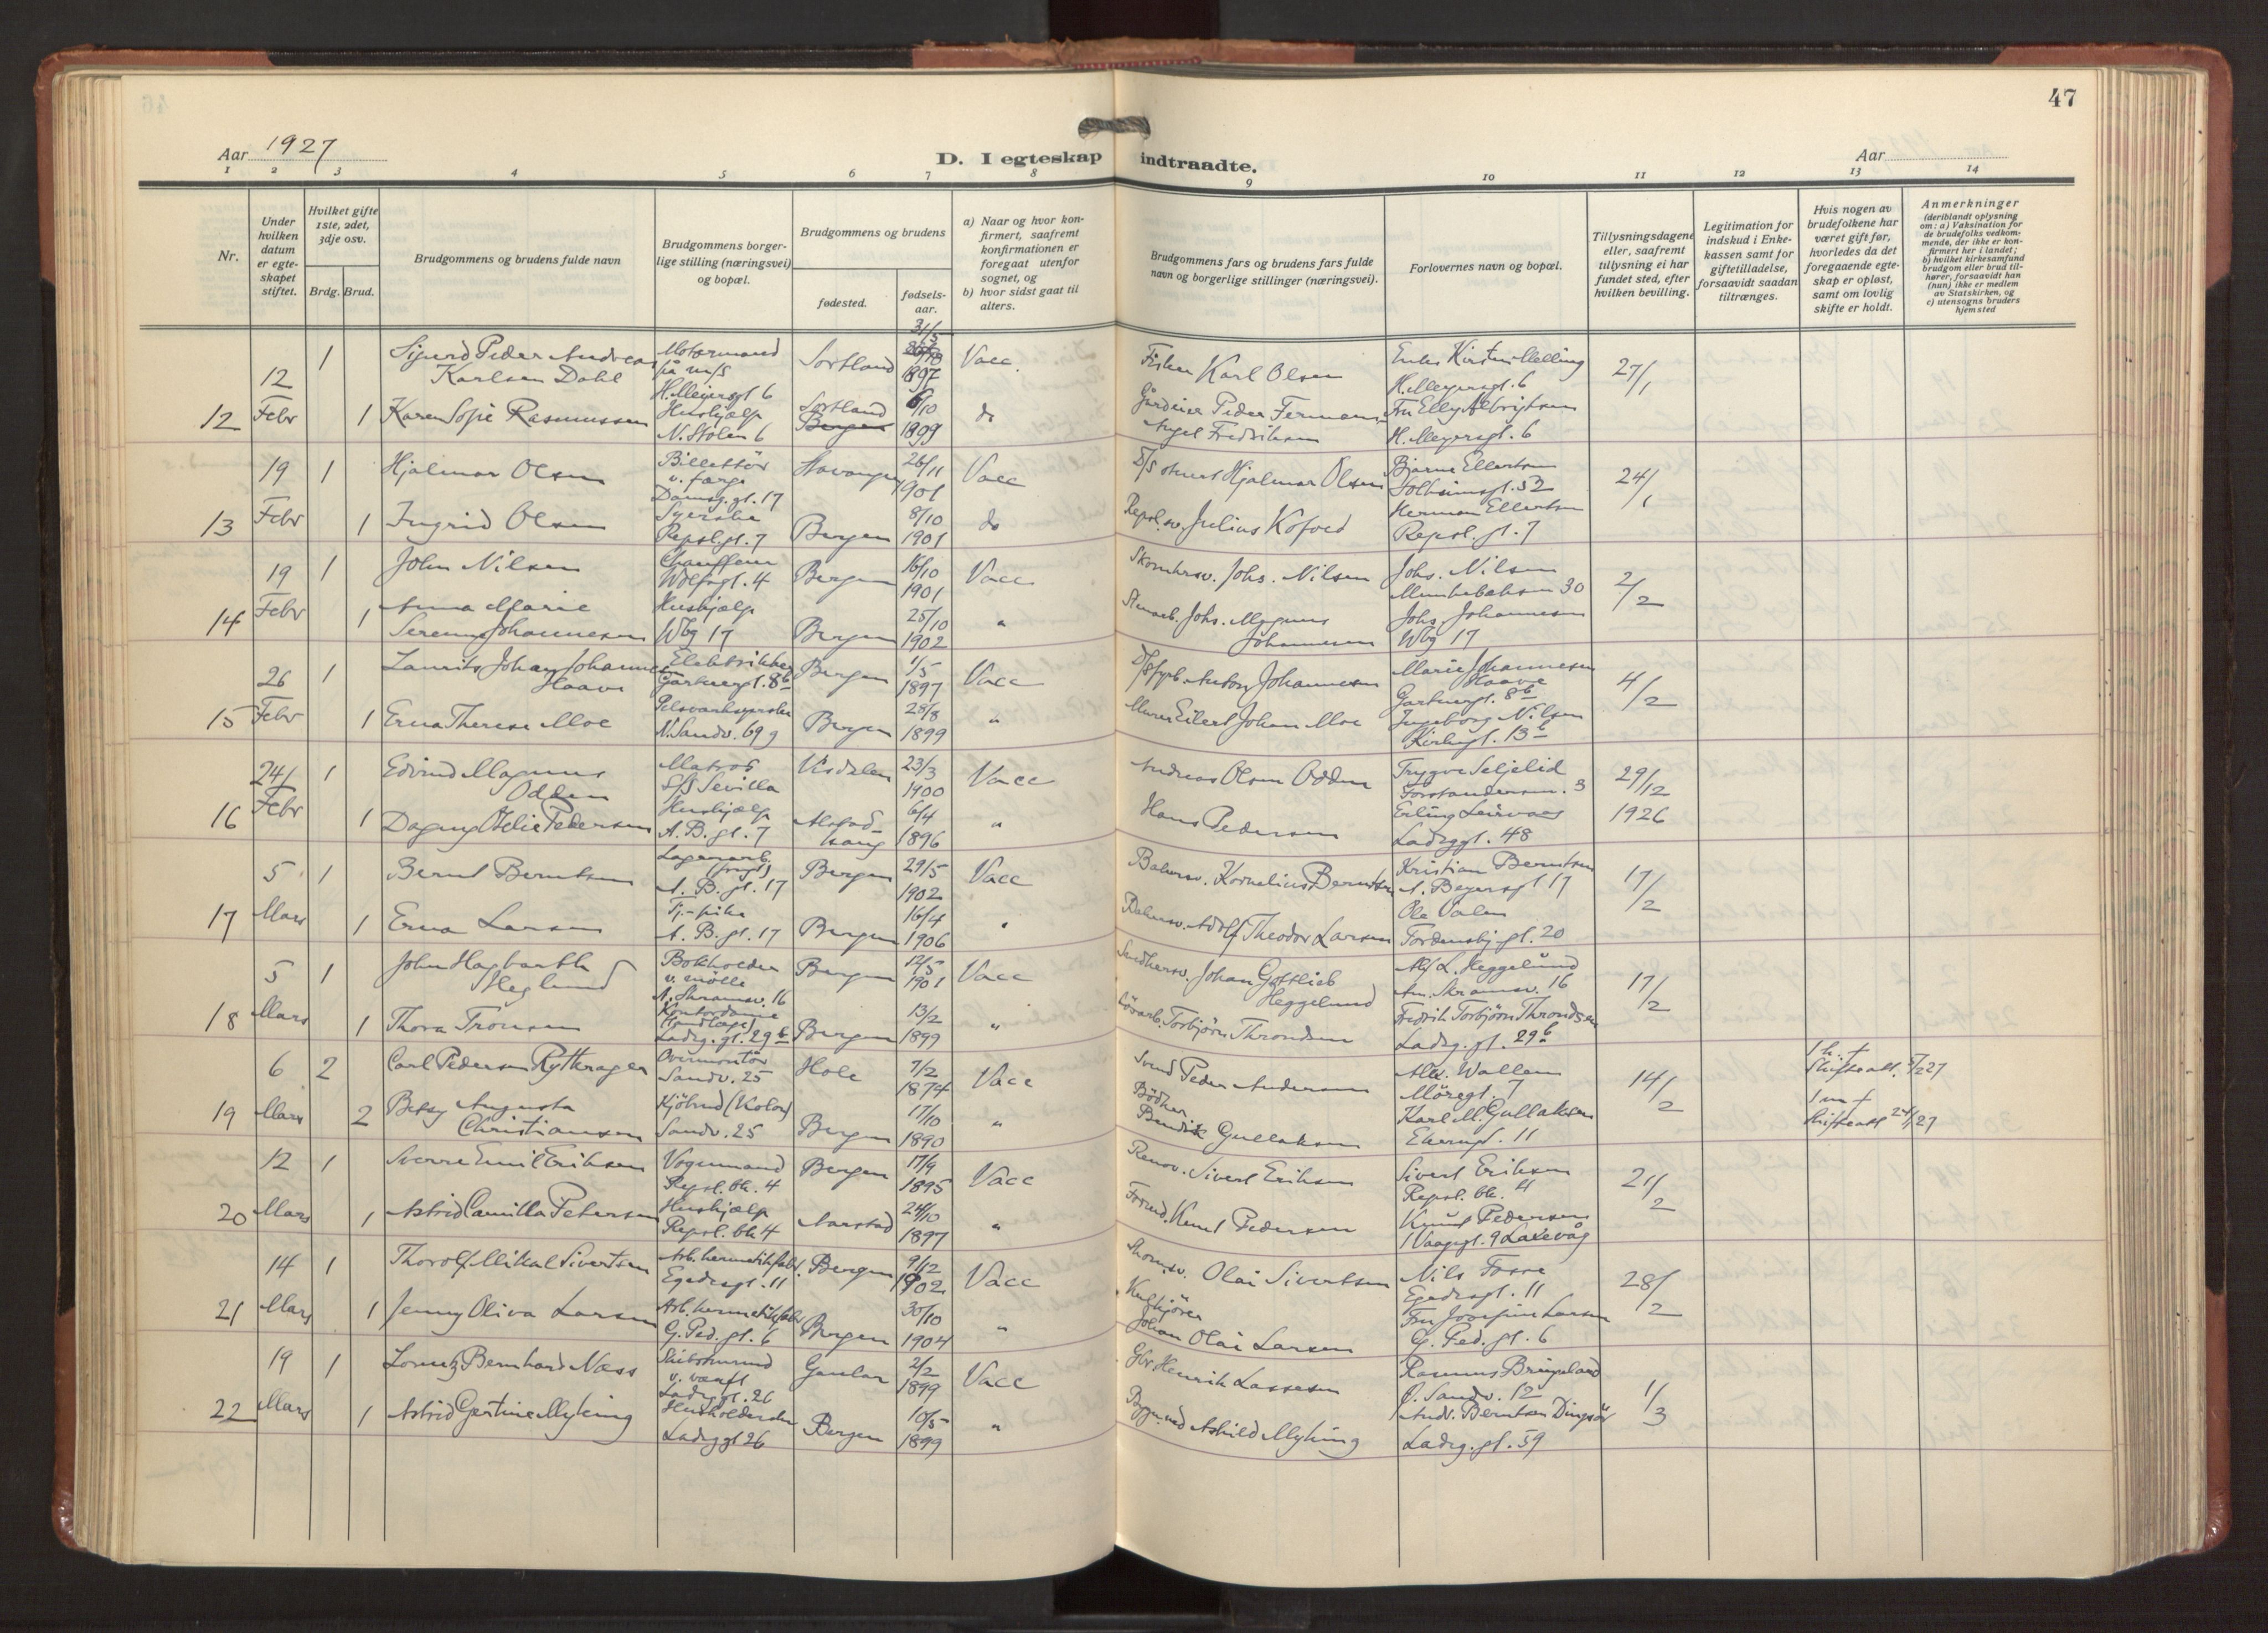 47
Aar 1927
D. I egteskap indtraadte.
Aar
1 2 3 4 5 6 7 8 9 10 11 12 13 14
Nr.
Under hvilken datum er egteskapet stiftet.
Hvilket gifte 1ste, 2det, 3dje osv.
Brdg. Brud.
Brudgommens og brudens fulde navn
Brudgommens borgerlige stilling (næringsvei) og bopæl.
Brudgommens og brudens
fødested.
fødselsaar.
a) Naar og hvor konfirmert, saafremt konfirmationen er foregaat utenfor sognet, og
b) hvor sidst gaat til alters.
Brudgommens fars og brudens fars fulde navn og borgerlige stillinger (næringsvei).
Forlovernes navn og bopæl.
Tillysningsdagene eller, saafremt tillysning ei har fundet sted, efter hvilken bevilling.
Legitimation for indskud i Enkekassen samt for giftetilladelse, forsaavidt saadan tiltrænges.
Hvis nogen av brudefolkene har været gift før, hvorledes da det foregaaende egteskap er opløst, samt om lovlig skifte er holdt.
Anmerkninger (deriblandt oplysning om: a) Vaksination for de brudefolks vedkommende, der ikke er konfirmert her i landet; b) hvilket kirkesamfund brudgom eller brud tilhører, forsaavidt han (hun) ikke er medlem av Statskirken, og c) utensogns bruders hjemsted
12 12 Febr 1 Sigurd Peder Andreas Karlsen Dahl Motormand på m/s H. Meyersgt 6 Sortland 31/5 1897 Vacc. Fisker Karl Olsen H. Meyersgt. 6 27/1
1 Karen Sofie Rasmussen Hushjælp N. Stolen 6 Sortland Bergen 6/10 1899 do Gårdeier Peder Fermann Angel Fredriksen Fru Elly Albrigtsen H. Meyersgt. 6
13 19 Febr 1 Hjalmar Olsen Billettör v. færge Damsg. gt. 17 Stavanger 26/11 1901 Vacc Hjalmar Olsen Bjarne Ellertsen Solheimsgt. 52 24/1
1 Ingrid Olsen Syerske Repsl. gt. 7 Bergen 8/10 1901 do Repsl. sv. Julius Kofoed Herman Ellertsen Repsl. gt. 7
14 19 Febr 1 John Nilsen Chauffeur Wolfsgt. 4 Bergen 16/10 1901 Vacc Johs. Nilsen Johs. Nilsen Munkebaksen 30 2/2
1 Anna Marie Johannesen Hushjælp Wbg 17 Bergen 25/10 1902 " Johs. Magnus Johannesen Johs. Johannesen Wbg 17
15 26 Febr 1 Laurits Johan Johannesen Haave Elektriker Gartnergt. 8b Bergen 1/5 1897 Vacc Antony Johannesen Marie Johannesen Haave Gartnergt. 8b 4/2
1 Erna Therese Moe N. Sandv. 69 g Bergen 28/8 1899 " Murer Eilert Johan Moe Ingeborg Nilsen Kirkegt. 13b
16 24/ Febr 1 Edvind Magnus Odden Matros S/S Sevilla Visdalen 23/3 1900 Vacc Andreas Olsen Odden Trygve Seljelid Forstandersm. 3 29/12 1926
1 Dagny Otelie Pedersen Hushjælp A. B. gt. 7 6/4 1896 " Hans Pedersen Erling Leirvaag Ladeggt. 48
17 5 Mars 1 Bernt Berntsen Lagerarb. (frugt) A. B. gt. 17 Bergen 29/5 1902 Vacc Kornelius Berntsen Kristian Berntsen A. Beyersgt 17 17/2
1 Erna Larsen Tj.-pike A. B. gt. 17 Bergen 16/4 1906 " Adolf Theodor Larsen Ole Valen Tordenskj. gt. 20
18 5 Mars 1 John Hagbarth Heglund Bokholder v. mölle A. Skramsv. 16 Bergen 12/5 1901 Vacc Johan Gottlieb Heggelund Alf L. Heggelund Am. Skramsv. 16 17/2
1 Thora Tronsen Kontordame Ladeg. gt. 29b Bergen 13/2 1899 " Torbjörn Throndsen Fredrik Torbjörn Throndsen Ladeg. gt. 29b
19 6 Mars 2 Carl Pedersen Rytterager Overmontör Sandv. 25 Hole 7/2 1874 Vacc Svend Peder Andersen Alex. Wallem Möregt. 7 14/2 1 h. + Skifteatt. /2 27
2 Betsy Augusta Christiansen Kjöbmd (Kolon) Sandv. 25 Bergen 17/10 1890 " Bödker Bendik Gullaksen Karl M. Gullaksen Ekerngt. 11 1 m + Skifteatt 24/ 27
20 12 Mars 1 Sverre Emil Eriksen Vognmand Repsl. bk. 4 Bergen 17/9 1895 Vacc Renov. Sivert Eriksen Sivert Eriksen Repsl. bk. 4 21/2
1 Astrid Camilla Petersen Hushjælp Repsl. bk 4 Aarstad 24/10 1897 " Knut Pedersen Knut Pedersen Vaagsgt. 9 Laxevåg
21 14 Mars 1 Thorolf Mikal Sivertsen Arb. hermetikfabr. Egedesgt. 11 Bergen 9/12 1902 Vacc Olai Sivertsen Nils Fosse Egedesgt. 11 28/2
1 Jenny Oliva Larsen Arb. hermetikfabr G. Ped. gt. 6 Bergen 30/10 1904 " Kulkjörer Johan Olai Larsen Fru Josefine Larsen G. Ped. gt. 6
22 19 Mars 1 Lorentz Bernhard Næss v. værft Ladeggt. 26 Gaular 2/2 1899 Vacc Gbr Henrik Lassesen Rasmus Bringeland Ö. Sandv. 12 1/3
1 Astrid Gertine Myking Husholderske Ladeggt 26 Bergen 10/5 1899 " Askild Myking Andr. Berntsen Dingsör Ladeg. gt. 59